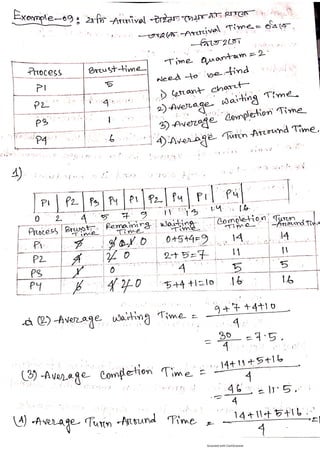 Example-09: যদি Arrival time দেওয়া না থাকে
তাহলে Arrival Time = 0 ধরে
নিতে হবে
Process Brust-time
P1 5
P2 4
P3 1
P4 6
Time quantum = 2
Need to be find
1) Grant chart
2) Average waiting Time
3) Average Completion Time
4) Average Turn Around Time.
1)
P1 P2 P3 P4 P1 P2 P4 P1 P4
0 2 4 5 7 9 11 13 14 16
Process Brust Time Remaining Time Waiting Time Completion Time Turn Around Time
P1 5 3 1 0 0+5+4=9 14 14
P2 4 2 0 2+5=7 11 11
P3 1 0 4 5 5
P4 6 4 2 0 5+4+1=10 16 16
(2) Average waiting Time = 9+7+4+10 / 4
= 30/4 = 7.5.
(3) Average Completion Time = 14+11+5+16 / 4
= 46/4 = 11.5.
(4) Average Turn Around Time = 14+11+5+16 / 4 =
Scanned with CamScanner